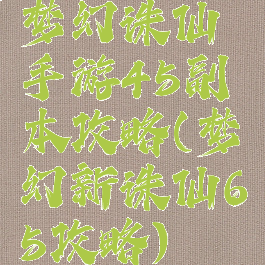 梦幻诛仙
手游45副
本攻略(梦
幻新诛仙6
5攻略)